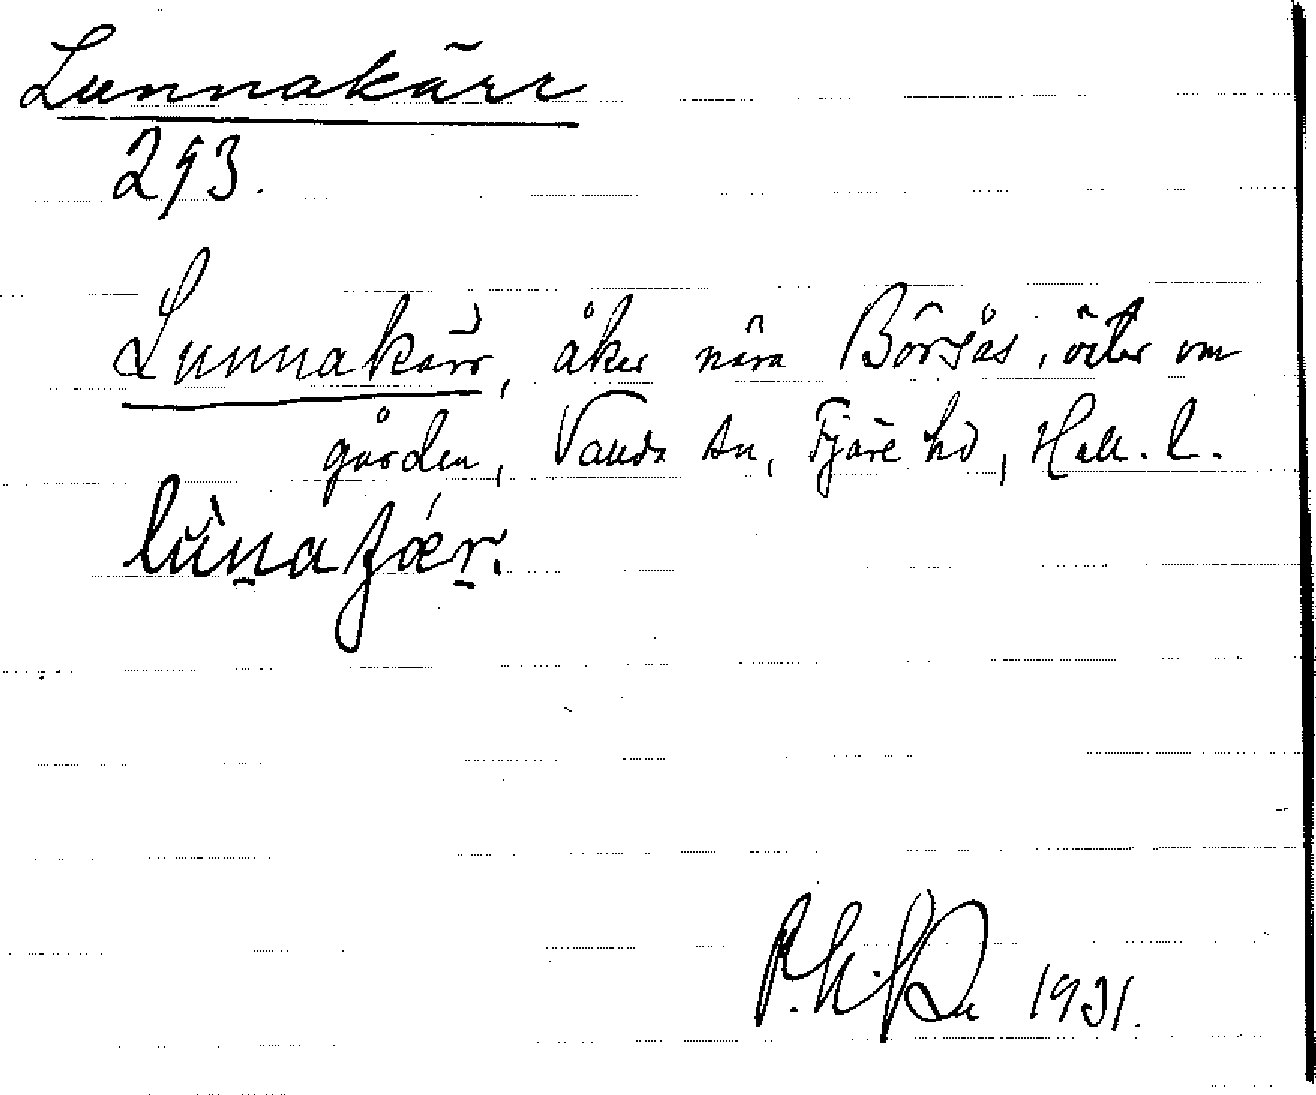 Lunnakärr
293.
Lunnakärr, åker nära Börsås, öster om
gården, Vands sn, Fjäre hd, Hall. l.
1931.